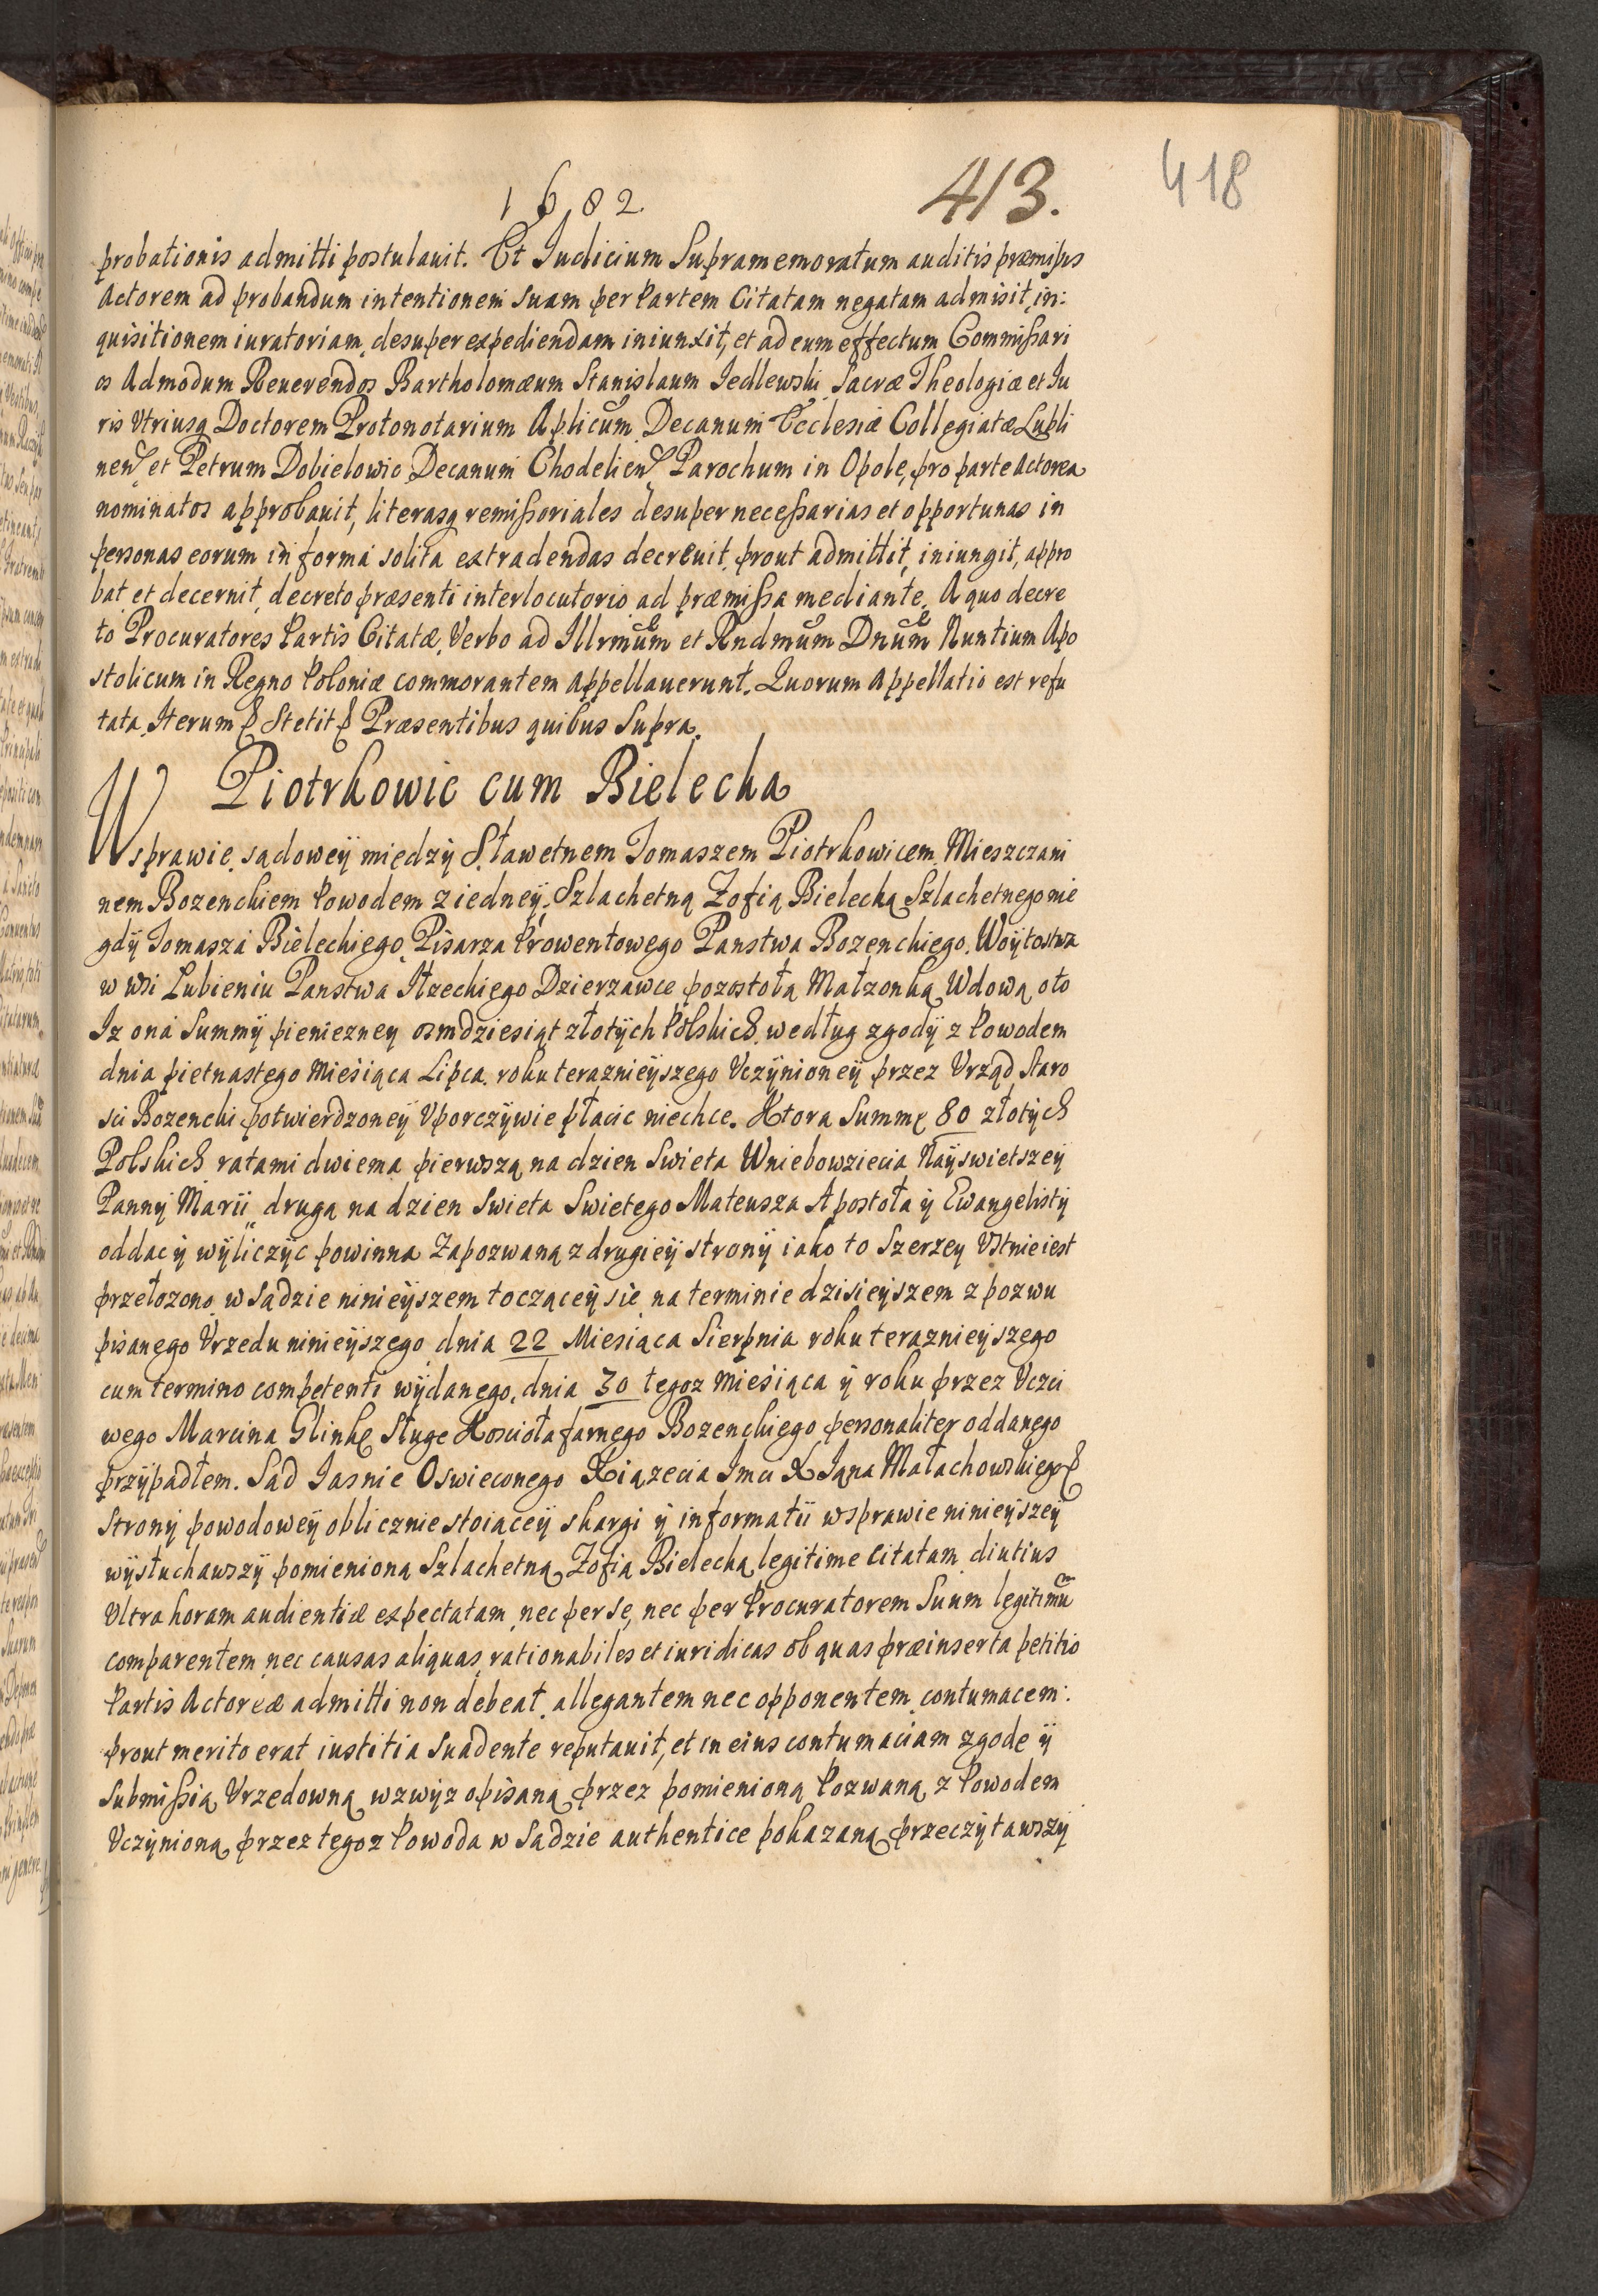 1682
413.
418
probationis admitti postulauit. Et Iudicium Supramemoratum auditis præmißis
Actorem ad probandum intentionem suam per Partem Citatam negatam admisit, in:
quisitionem iuratoriam, desuper expediendam iniunxit, et ad eum effectum Commißari
os Admodum Reuerendos Bartholomæum Stanislaum Iedlewski Sacræ Theologiæ et Iu
ris Vtriusq Doctorem Protonotarium Aplicum Decanum Ecclesiæ Collegiatæ Lubli
nen et Petrum Dobielowic Decanum Chodelien Parochum in Opole, pro parte Actorea
nominatos approbauit, literasq remißoriales desuper neceßarias et opportunas in
personas eorum in forma solita extradendas decreuit, prout admittit, iniungit, appro
bat et decernit, decreto præsenti interlocutorio ad præmißa mediante. A quo decre
to Procuratores Partis Citatæ, Verbo ad Illrmum et Rndmum Dnum Nuntium Apo
stolicum in Regno Poloniæ commorantem Appellauerunt. Quorum Appellatio est refu
tata. Iterum & Stetit & Præsentibus quibus Supra.
Piotrkowic cum Bielecka
W sprawie sądoweÿ międzÿ Sławetnem Tomaszem Piotrkowicem Mieszczani
nem Bozenckiem Powodem z iedneÿ, Szlachetną Zofią Bielecką Szlachetnego nie
gdÿ Tomasza Bieleckiego Pisarza Prowentowego Panstwa Bozenckiego. Woÿtostwa
w wsi Lubieniu Panstwa Iłzeckiego Dzierzawce pozostołą Małzonką Wdową oto
Iz ona Summÿ pieniezney osmdziesiąt złotÿch Polskich według zgodÿ z Powodem
dnia pietnastego Miesiąca Lipca roku teraznieÿszego Vczÿnioneÿ przez Vrząd Staro
sci Bozencki potwierdzoneÿ Vporczÿwie płacic niechce. Ktora Summę 80 złotÿch
Polskich ratami dwiema pierwszą na dzien Swieta Wniebowziecia Naÿswietszeÿ
Pannÿ Marii drugą na dzien Swieta Swietego Mateusza Apostoła ÿ Ewangelistÿ
oddac ÿ wÿliczÿc powinna Zapozwaną z drugieÿ stronÿ iako to Szerzey Vstnie iest
przełozono w sądzie ninieÿszem toczączeÿ sie na terminie dzisieÿszem z pozwu
pisanego Vrzedu ninieÿszego dnia 22 Miesiąca Sierpnia roku teraznieÿszego
cum termino competenti wÿdanego, dnia 30 tegoz Miesiąca ÿ roku przez Vczci
wego Marcina Glinkę Sługe Koscioła farnego Bozenckiego personaliter oddanego
przÿpadłem. Sąd Iasnie Oswieconego Xiązecia Imci X Iana Małachowskiego &
Stronÿ powodoweÿ oblicznie stoiąceÿ skargi ÿ informatii w sprawie ninieÿszeÿ
wÿsłuchawszÿ pomieniona Szlachetną Zofią Bielecką legitime Citatam diutius
Vltra horam audientiæ expectatam, nec per se, nec per Procuratorem Suum legitimu
comparentem nec causas aliquas rationabiles et iuridicas ob quas præinserta petitio
Partis Actoreæ admitti non debeat, allegantem nec opponentem contumacem:
prout merito erat iustitia suadente reputauit, et in eius contumaciam zgode ÿ
Submißią Vrzedowną wzwÿz opisaną przez pomienioną Pozwaną z Powodem
Vczÿnioną przez tegoz Powoda w Sądzie authentice pokazaną przeczÿtawszÿ